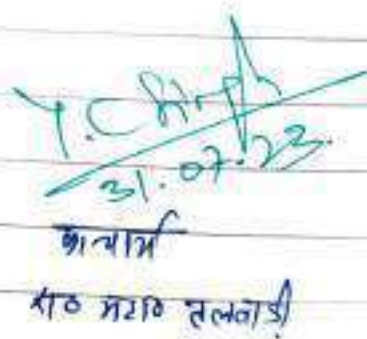 Y.C Singh
31.07.23.
प्राचार्य
रा० महा० तलवाड़ी